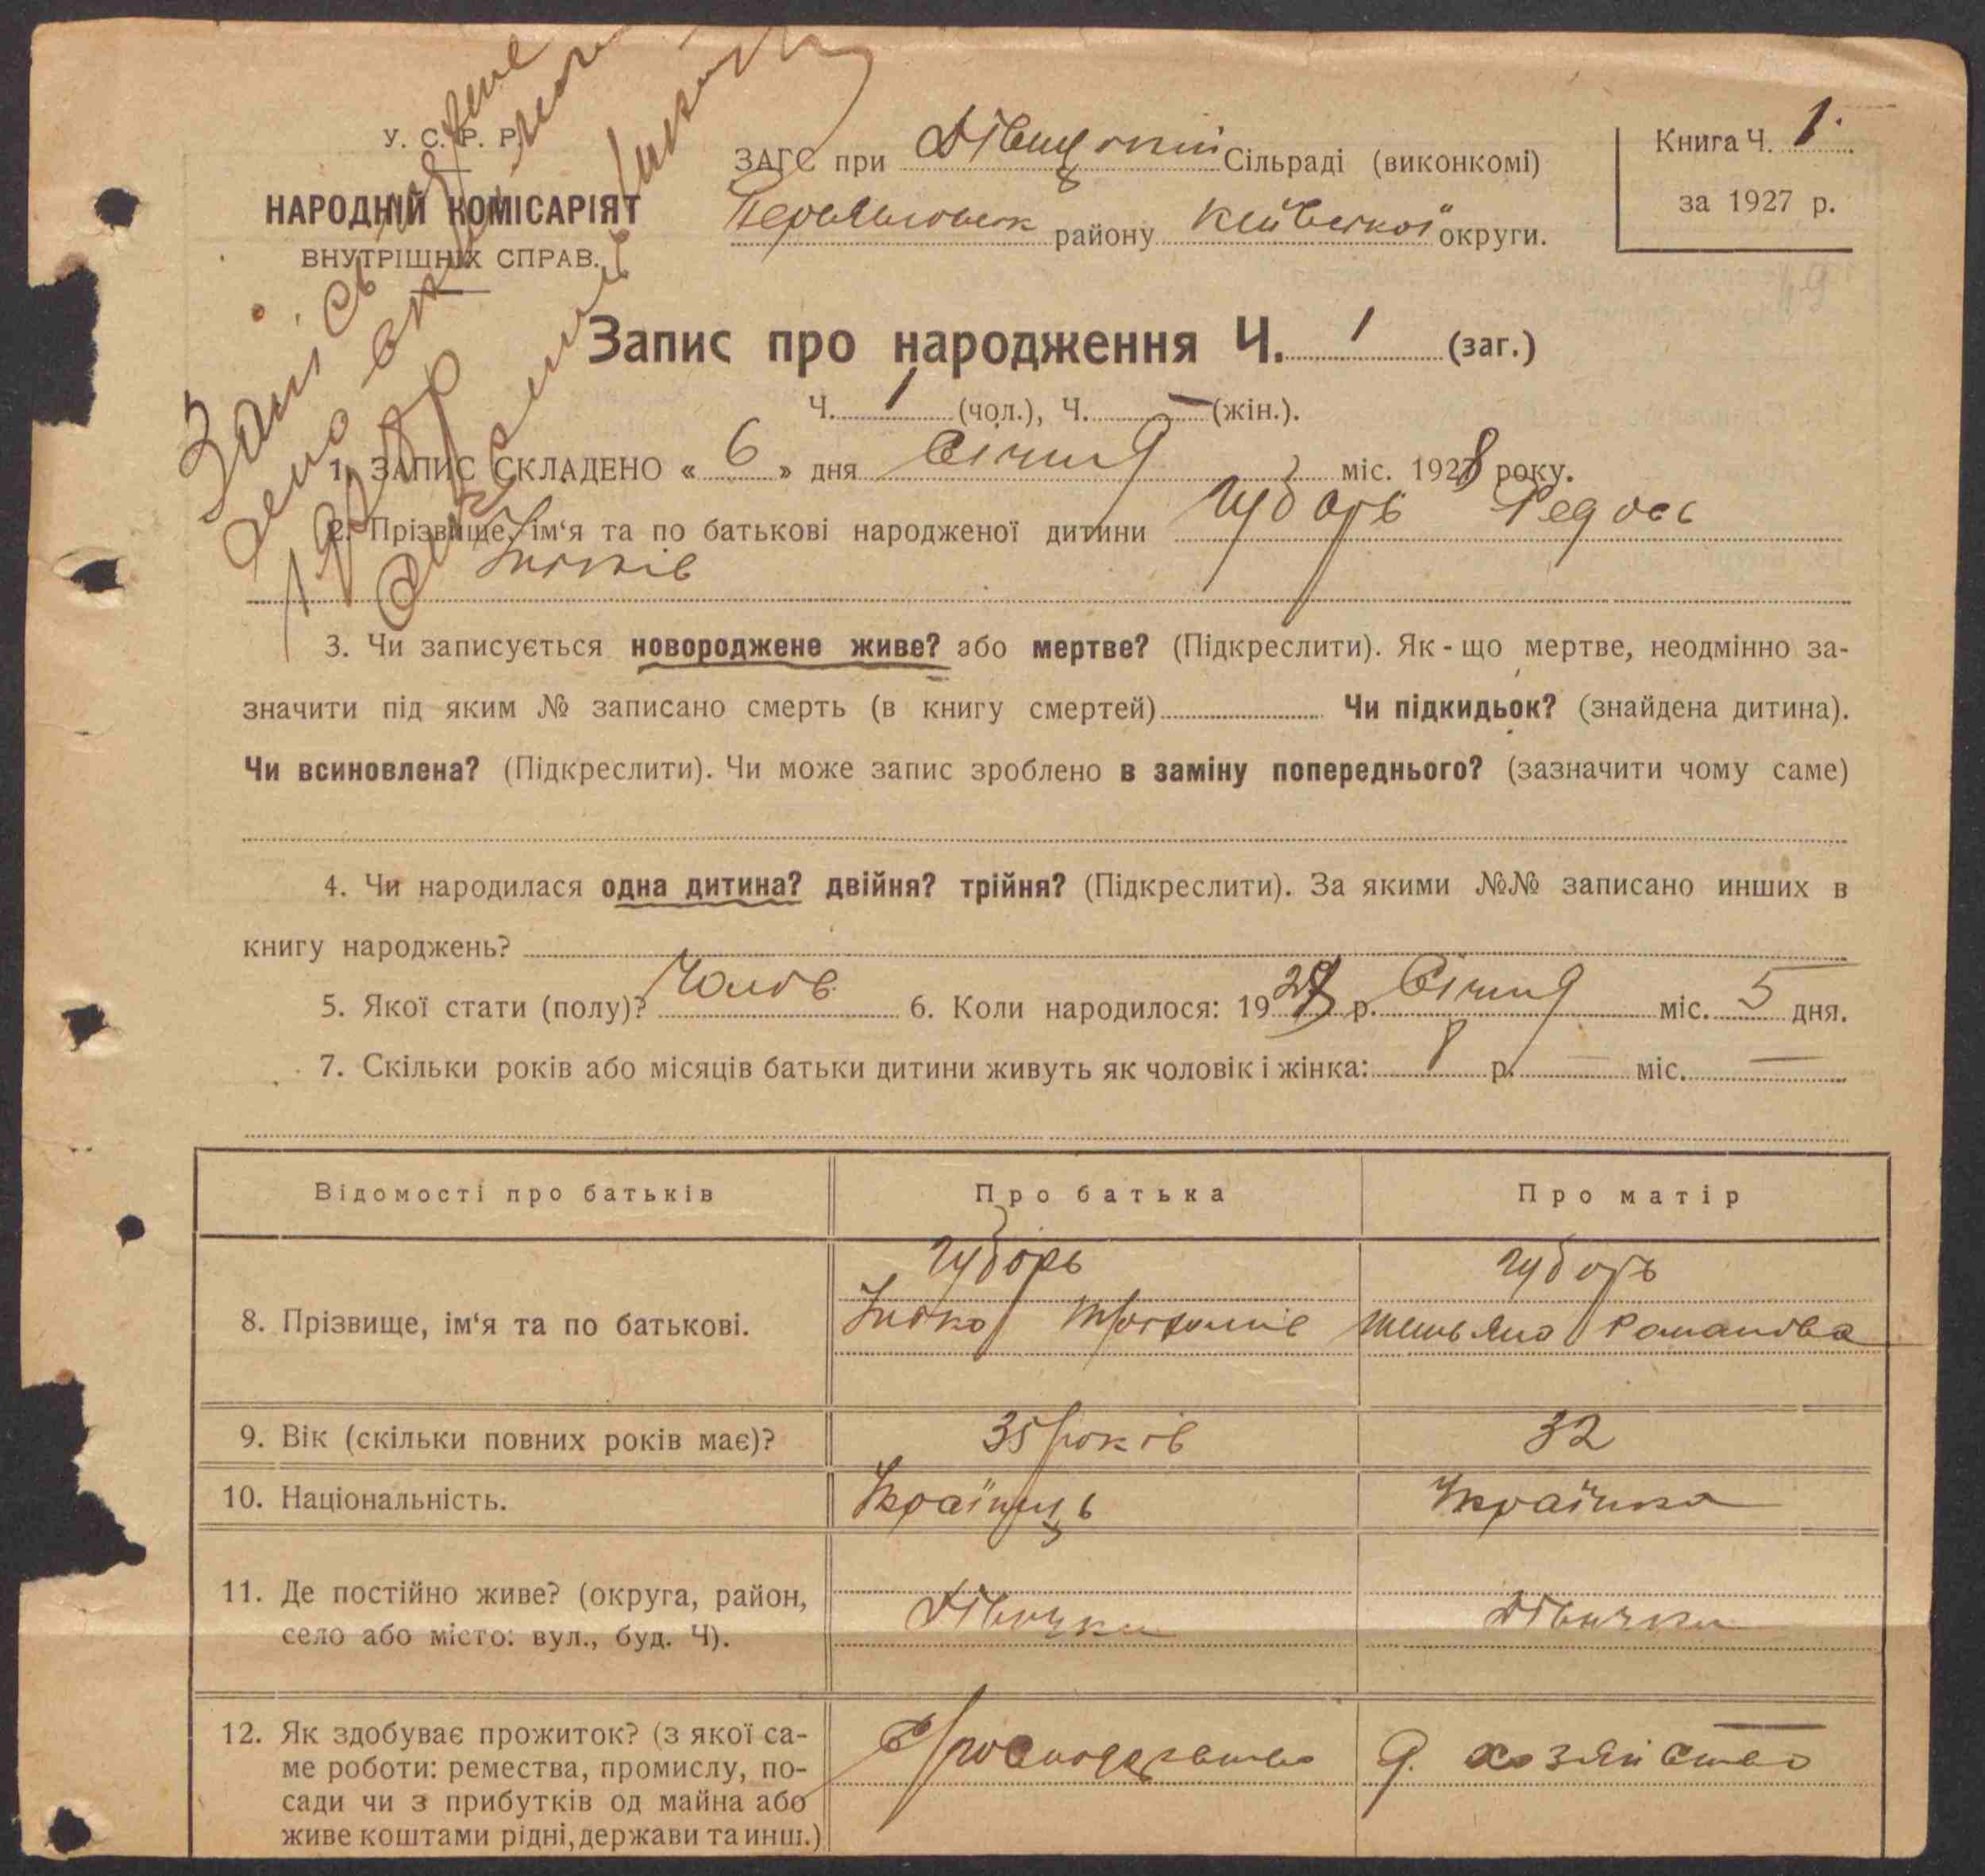 У. С. Р. Р.
НАРОДНІЙ КОМІСАРІЯТ
ВНУТРІШНІХ СПРАВ.
ЗАГС при Дівицькій Сільраді (виконкомі)
району Київської округи.
Книга Ч. 1.
за 1927 р.
Запис про народження Ч. 1 (заг.)
Ч. 1 (чол.), Ч. — (жін.).
1. ЗАПИС СКЛАДЕНО « 6 » дня Січня міс. 1928 року.
2. Прізвище, ім‘я та по батькові народженої дитини Губарь Федось
3. Чи записується новороджене живе? або мертве? (Підкреслити). Як-що мертве, неодмінно за-
значити під яким № записано смерть (в книгу смертей) Чи підкидьок? (знайдена дитина).
Чи всиновлена? (Підкреслити). Чи може запис зроблено в заміну попереднього? (зазначити чому саме)
4. Чи народилася одна дитина? двійня? трійня? (Підкреслити). За якими №№ записано инших в
книгу народжень?
5. Якої стати (полу)? Чолов. 6. Коли народилося: 1928 р. Січня міс. 5 дня.
7. Скільки років або місяців батьки дитини живуть як чоловік і жінка: 8 р. — міс. —
Відомості про батьків Про батька Про матір
Губарь Губарь
8. Прізвище, ім‘я та по батькові. Романова
9. Вік (скільки повних років має)? 35 років 32
10. Національність. Українець Українка
11. Де постійно живе? (округа, район,
село або місто: вул., буд. Ч). Дівички Дівички
12. Як здобуває прожиток? (з якої са-
ме роботи: ремества, промислу, по- Д. хозяйство
сади чи з прибутків од майна або
живе коштами рідні, держави та инш.)